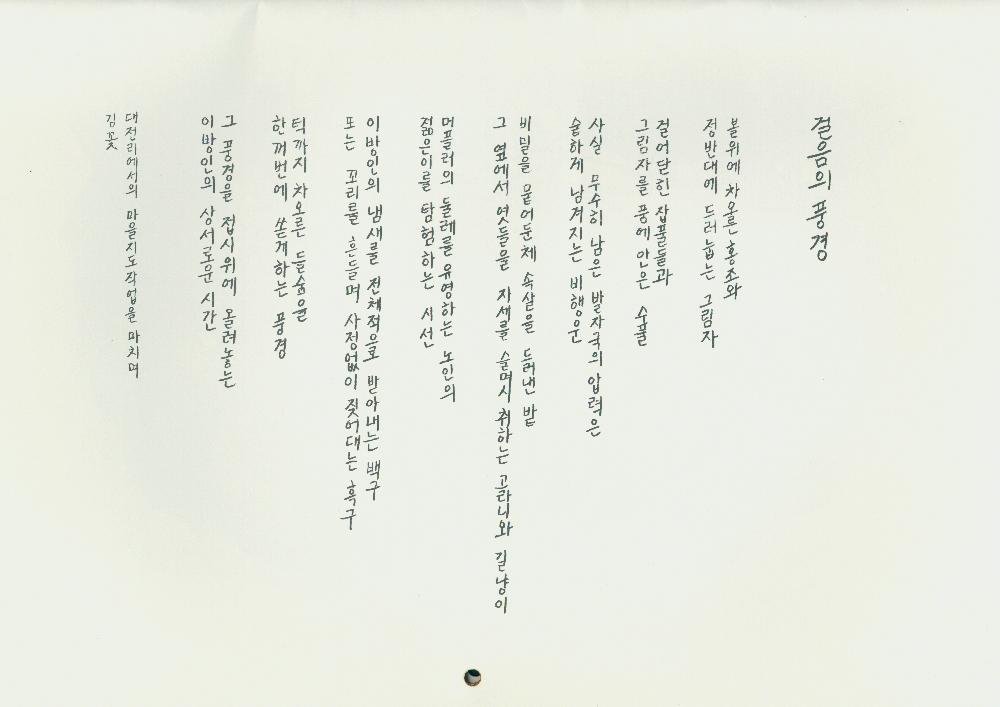 걸음의 풍경
볼위에 차오른 홍조와
정반대에 드러눕는 그림자
걸어닫힌 잡풀들과
그림자를 품에 안은 수풀
사실 무수히 남은 발자국의 압력은
숱하게 남겨지는 비행운
비밀을 묻어둔체 속살을 드러낸 밭
그 옆에서 엿들을 자세를 슬며시 취하는 고라니와 길냥이
머플러의 둘레를 유영하는 노인의
젊은이를 탐험하는 시선
이방인의 냄새를 전체적으로 받아내는 백구
또는 꼬리를 흔들며 사정없이 짖어대는 흑구
턱까지 차오른 들숨을
한꺼번에 쏟게하는 풍경
그 풍경을 접시위에 올려놓는
이방인의 상서로운 시간
대전리에서의 마을지도작업을 마치며
김꽃